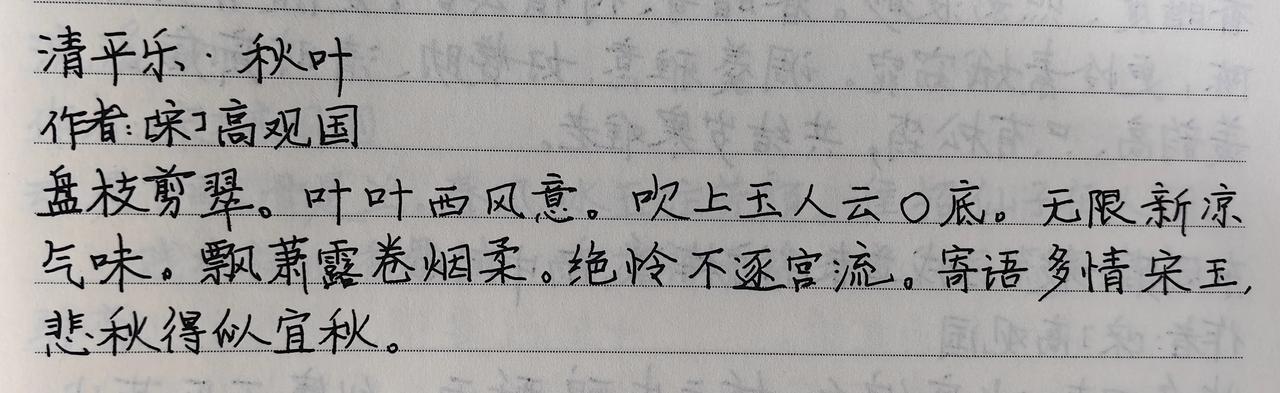 清平乐·秋叶
作者:[宋]高观国
盘枝剪翠。叶叶西风意。吹上玉人云〇底。无限新凉
气味。飘萧露卷烟柔。绝怜不逐宫流。寄语多情宋玉,
悲秋得似宜秋。